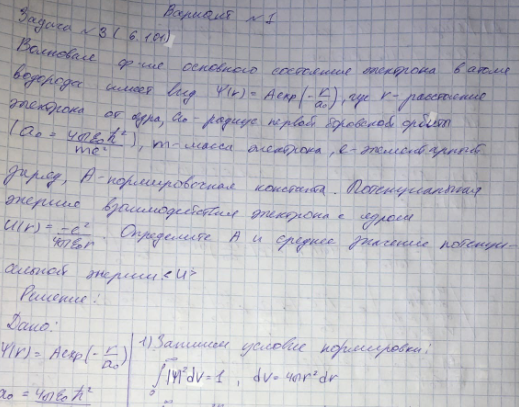 Вариант №1
Задача №3 (6.101)
Волновая ф-ия основного состояния электрона в атоме
водорода имеет вид Ψ(r) = A exp(-r/a₀), где r - расстояние
электрона от ядра, a₀ - радиус первой боровской орбиты
(a₀ = 4πε₀ħ²/me²), m - масса электрона, e - элементарный
заряд, A - нормировочная константа. Потенциальная
энергия взаимодействия электрона с ядром
U(r) = -e²/4πε₀r. Определите A и среднее значение потенци-
альной энергии <U>
Решение:
Дано:
Ψ(r) = A exp(-r/a₀)
a₀ = 4πε₀ħ²
1) Запишем условие нормировки:
∫₀^∞ |Ψ|² dV = 1, dV = 4πr² dr